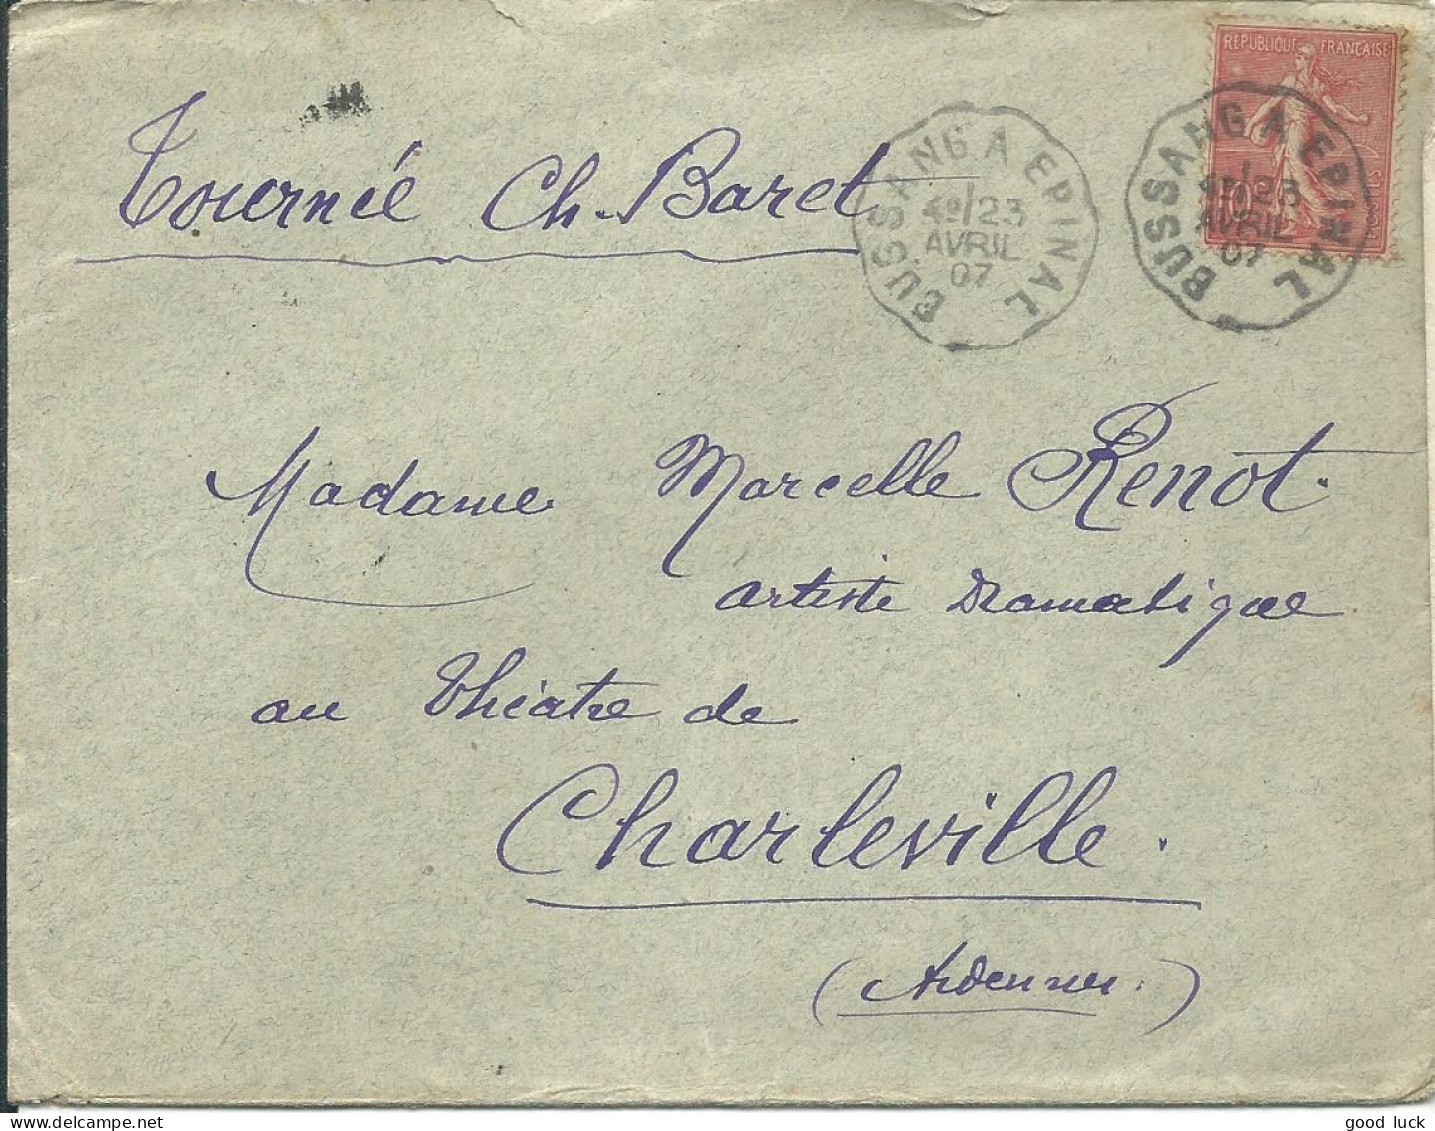 REPUBLIQUE FRANCAISE
10c
Tournée Ch. Baret
BUSSANG A EPINAL
4e/23
AVRIL
07
BUSSANG A EPINAL
4e/23
AVRIL
07
Madame Marcelle Renot.
artiste Dramatique
au Théâtre de
Charleville.
(Ardennes.)
good luck